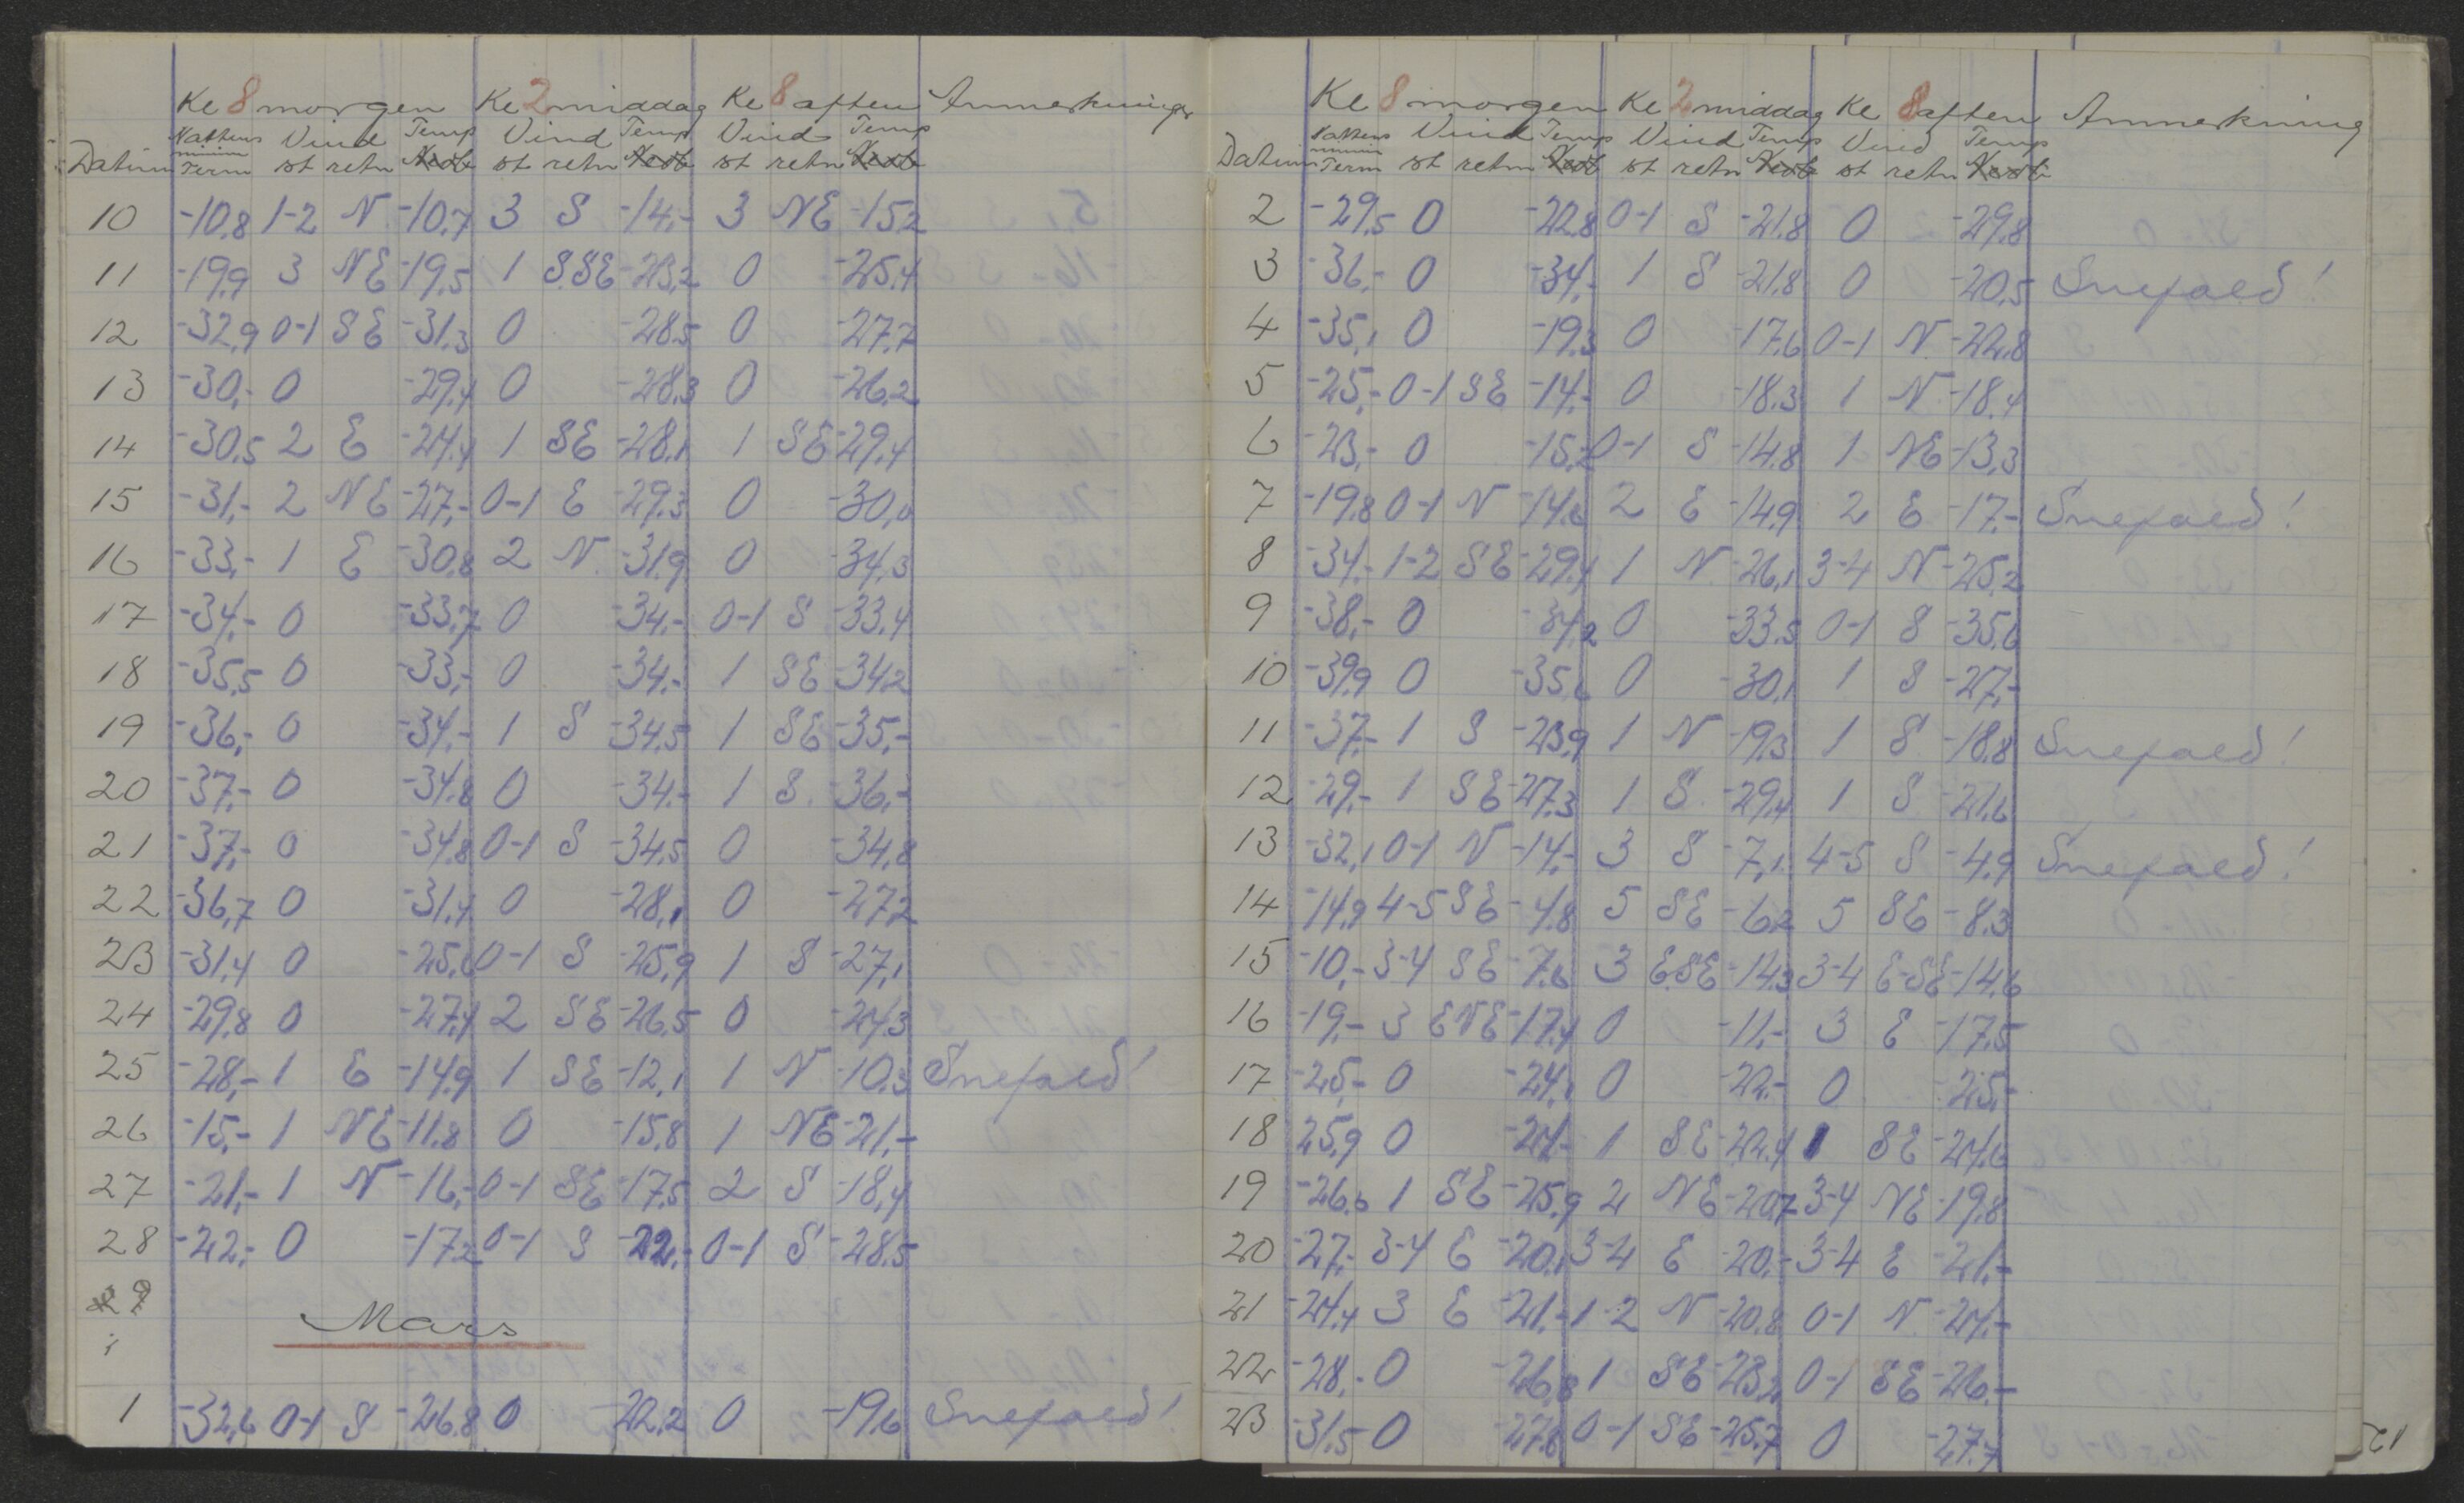 Kl 8 morgen Kl 2 middag Kl 8 aften Anmerkninger
Nattens Vind Temp Vind Temp Vind Temp
Datum minim Term st retn st retn st retn
10 -10,8 1-2 N -10,7 3 S -14,- 3 NE -15,2
11 -19,9 3 NE -19,5 1 SSE -23,2 0 -25,4
12 -32,9 0-1 SE -31,3 0 -28,5 0 -27,7
13 -30,- 0 -29,4 0 -28,3 0 -26,2
14 -30,5 2 E -24,4 1 SE -28,1 1 SE -29,4
15 -31,- 2 NE -27,- 0-1 E -29,3 0 -30,0
16 -33,- 1 E -30,8 2 N -31,9 0 -34,3
17 -34,- 0 -33,7 0 -34,- 0-1 S -33,4
18 -35,5 0 -33,- 0 -34,- 1 SE -34,2
19 -36,- 0 -34,- 1 S -34,5 1 SE -35,-
20 -37,- 0 -34,8 0 -34,- 1 S -36,-
21 -37,- 0 -34,8 0-1 S -34,5 0 -34,8
22 -36,7 0 -31,4 0 -28,1 0 -27,2
23 -31,4 0 -25,6 0-1 S -25,9 1 S -27,1
24 -29,8 0 -27,4 2 SE -26,5 0 -24,3
25 -28,- 1 E -14,9 1 SE -12,1 1 N -10,3 Snefald!
26 -15,- 1 NE -11,8 0 -15,8 1 NE -21,-
27 -21,- 1 N -16,- 0-1 SE -17,5 2 S -18,4
28 -22,- 0 -17,2 0-1 S -22,- 0-1 S -28,5
29
Mars
1 -32,6 0-1 S -26,8 0 -22,2 0 -19,6 Snefald!
Kl 8 morgen Kl 2 middag Kl 8 aften Anmerkning
Nattens Vind Temp Vind Temp Vind Temp
Datum minim Term st retn st retn st retn
2 -29,5 0 -22,8 0-1 S -21,8 0 -29,8
3 -36,- 0 -34,- 1 S -21,8 0 -20,5 Snefald!
4 -35,1 0 -19,3 0 -17,6 0-1 N -22,8
5 -25,- 0-1 SE -14,- 0 -18,3 1 N -18,4
6 -23,- 0 -15,2 0-1 S -14,8 1 NE -13,3
7 -19,8 0-1 N -14,6 2 E -14,9 2 E -17,- Snefald!
8 -34,- 1-2 SE -29,4 1 N -26,1 3-4 N -25,2
9 -38,- 0 -34,2 0 -33,5 0-1 S -35,6
10 -39,9 0 -35,6 0 -30,1 1 S -27,-
11 -37,- 1 S -23,9 1 N -19,3 1 S -18,8 Snefald!
12 -29,- 1 SE -27,3 1 S -29,4 1 S -21,6
13 -32,1 0-1 N -14,- 3 S -7,1 4-5 S -4,9 Snefald!
14 -14,9 4-5 SE -4,8 5 SE -6,2 5 SE -8,3
15 -10,- 3-4 SE -7,6 3 ESE -14,3 3-4 E-SE -14,6
16 -19,- 3 ENE -17,4 0 -11,- 3 E -17,5
17 -25,- 0 -24,1 0 -22,- 0 -25,-
18 25,9 0 -24,- 1 SE -22,4 1 SE -24,6
19 -26,6 1 SE -25,9 2 NE -20,7 3-4 NE -19,8
20 -27,- 3-4 E -20,1 3-4 E -20,- 3-4 E -21,-
21 -24,4 3 E -21,- 1-2 N -20,8 0-1 N -24,-
22 -28,- 0 -26,8 1 SE -23,2 0-1 SE -26,-
23 -31,5 0 -27,8 0-1 SE -25,7 0 -27,7